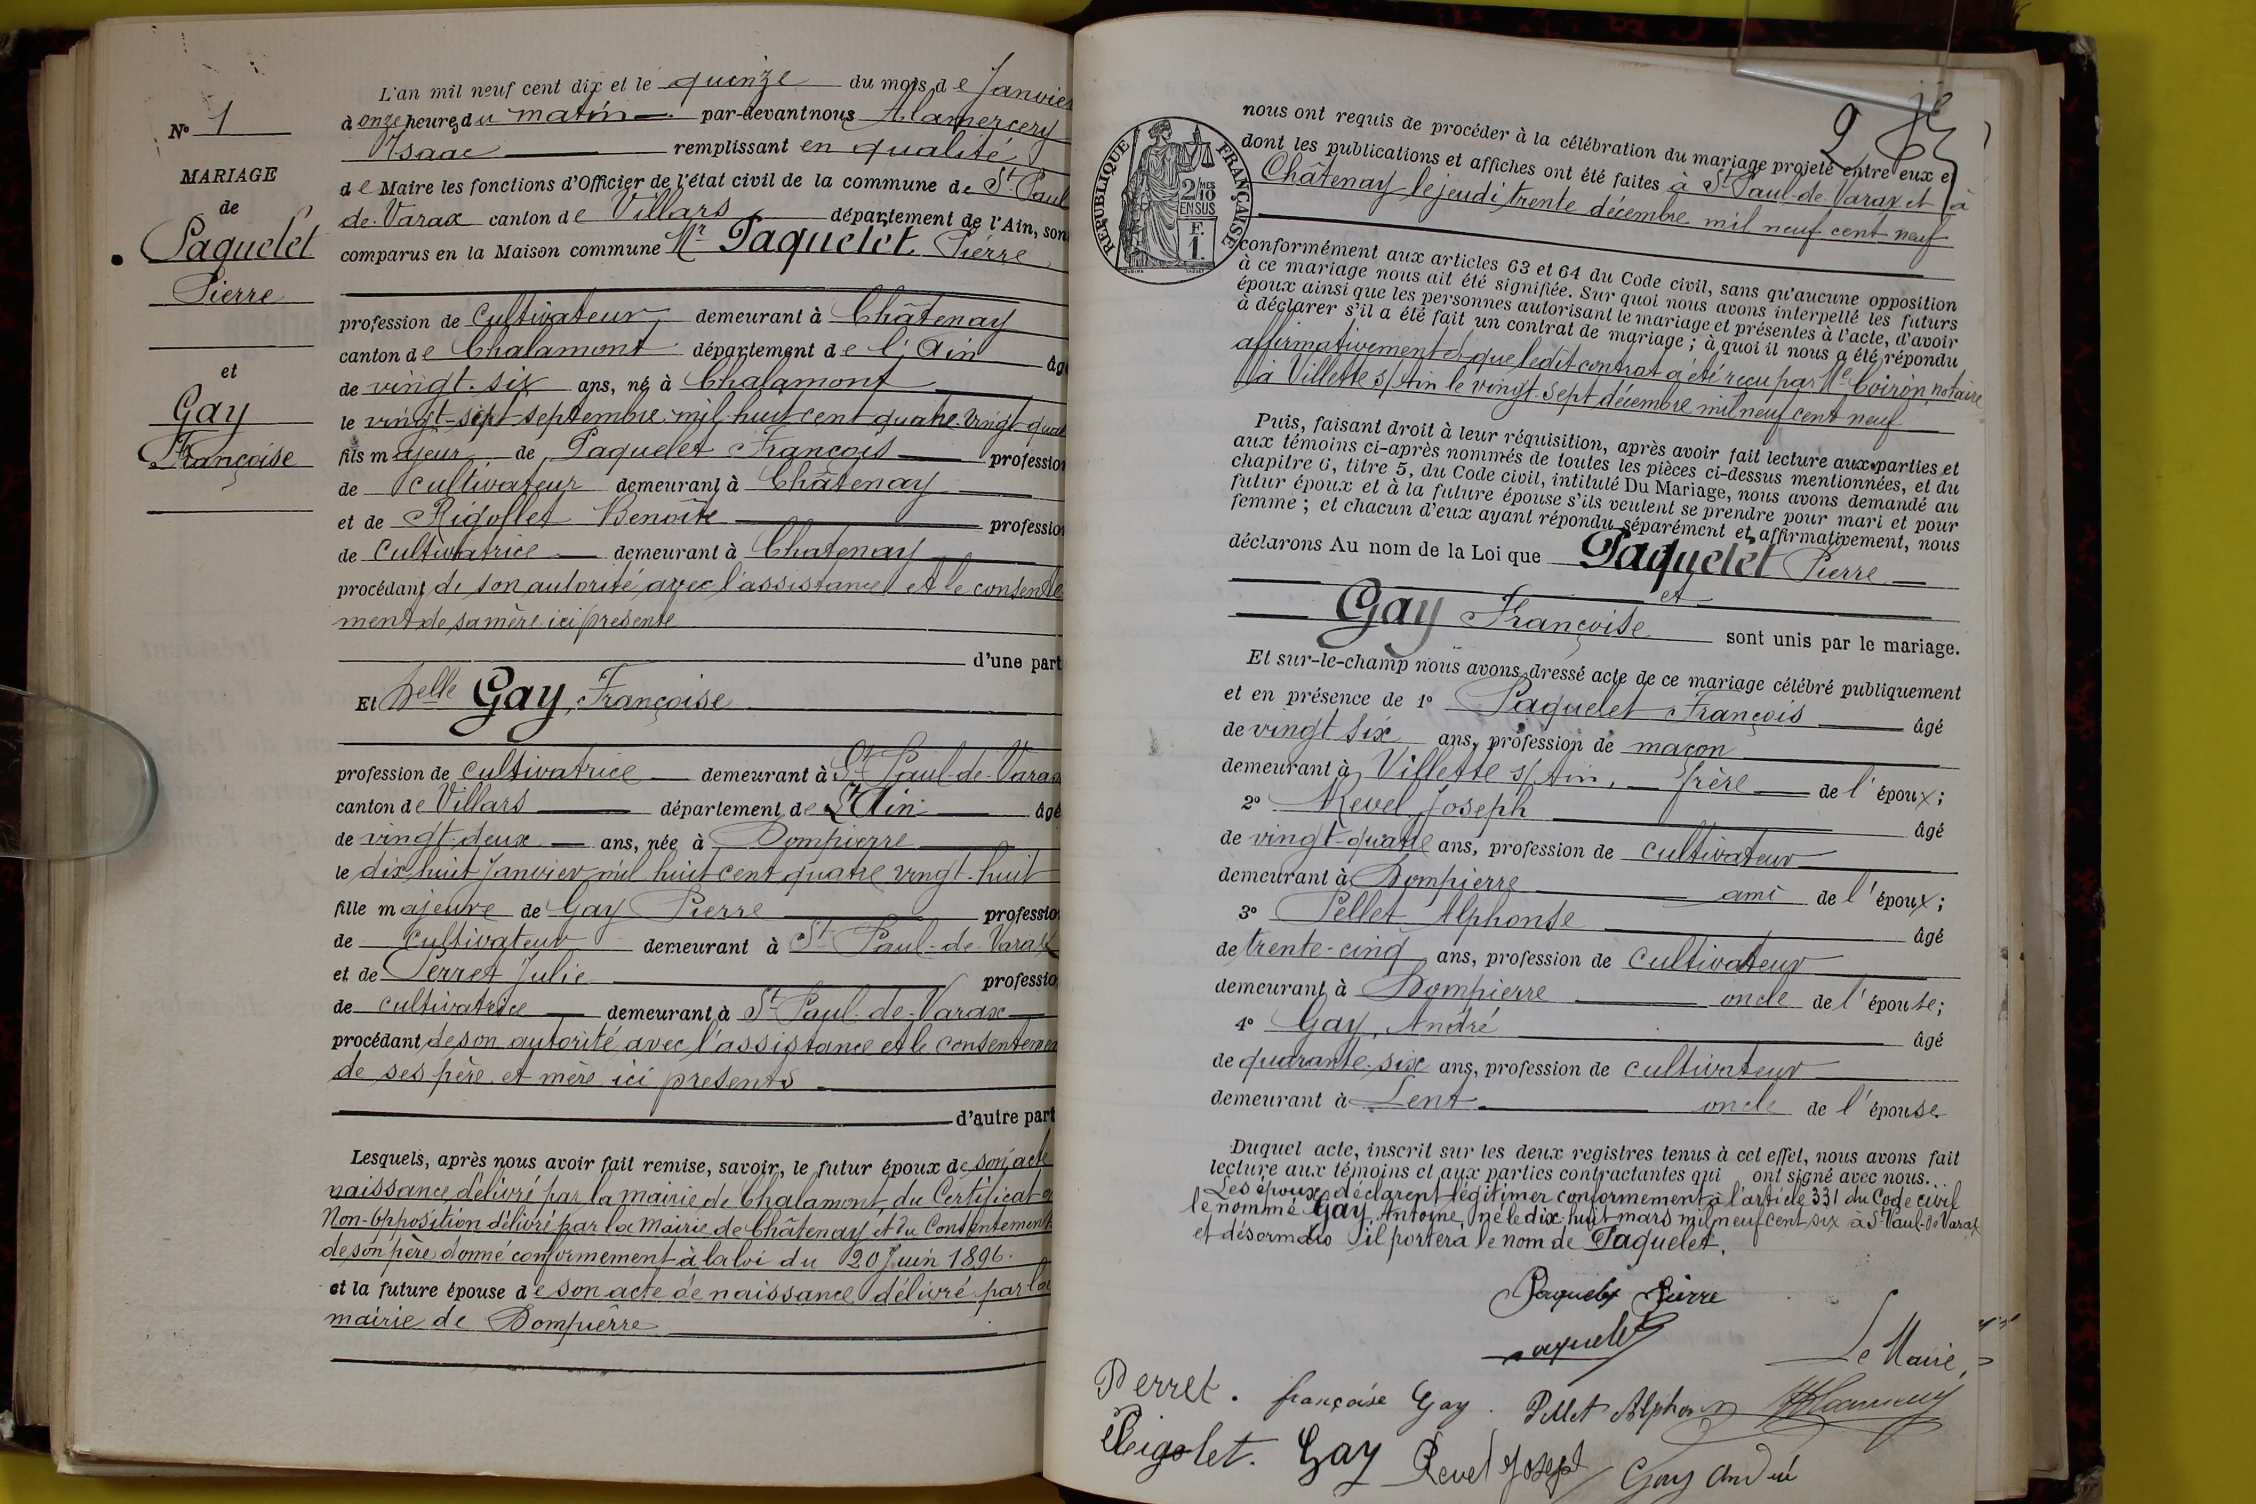 N° 1
MARIAGE
de
Paquelet
Pierre
et
Gay
Françoise
L'an mil neuf cent dix et le quinze du mois de Janvier
à onze heures du matin par-devant nous Alamercery
Isaac remplissant en qualité
de Maire les fonctions d'Officier de l'état civil de la commune de St Paul
de Varax canton de Villars département de l'Ain, sont
comparus en la Maison commune Mr Paquelet Pierre
profession de cultivateur demeurant à Châtenay
canton de Chalamont département de l'Ain âgé
de vingt-six ans, né à Chalamont
le vingt-sept septembre mil huit cent quatre-vingt-quat
fils majeur de Paquelet François profession
de cultivateur demeurant à Châtenay
et de Rigollet Benoîte profession
de cultivatrice demeurant à Chatenay
procédant de son autorité avec l'assistance et le consente
ment de sa mère ici présente
d'une part
Et Delle Gay, Françoise
profession de cultivatrice demeurant à St Paul-de-Varax
canton de Villars département de L'Ain âgé
de vingt-deux ans, née à Dompierre
le dix huit Janvier mil huit cent quatre vingt-huit
fille majeure de Gay Pierre profession
de cultivateur demeurant à St Paul-de-Varax
et de Perret Julie profession
de cultivatrice demeurant à St Paul-de-Varax
procédant de son autorité avec l'assistance et le consentemen
de ses père et mère ici presents
d'autre part
Lesquels, après nous avoir fait remise, savoir, le futur époux de son acte
naissance délivré par la mairie de Chalamont, du Certificat
Non-Opposition délivré par la Mairie de Châtenay et du Consentement
de son père donné conformement à la loi du 20 Juin 1896.
et la future épouse de son acte de naissance délivré par la
mairie de Dompierre
2
RÉPUBLIQUE FRANÇAISE
2/10 MES
EN SUS
F.
1.
nous ont requis de procéder à la célébration du mariage projeté entre eux et
dont les publications et affiches ont été faites à St Paul-de-Varax et à
Châtenay le jeudi trente décembre mil neuf cent neuf
conformément aux articles 63 et 64 du Code civil, sans qu'aucune opposition
à ce mariage nous ait été signifiée. Sur quoi nous avons interpellé les futurs
époux ainsi que les personnes autorisant le mariage et présentes à l'acte, d'avoir
à déclarer s'il a été fait un contrat de mariage ; à quoi il nous a été répondu
affirmativement et que ledit contrat a été reçu par Me Coiron, notaire
à Villette s/Ain le vingt-sept décembre mil neuf cent neuf
Puis, faisant droit à leur réquisition, après avoir fait lecture aux parties et
aux témoins ci-après nommés de toutes les pièces ci-dessus mentionnées, et du
chapitre 6, titre 5, du Code civil, intitulé Du Mariage, nous avons demandé au
futur époux et à la future épouse s'ils veulent se prendre pour mari et pour
femme ; et chacun d'eux ayant répondu séparément et affirmativement, nous
déclarons Au nom de la Loi que Paquelet Pierre
et
Gay Françoise sont unis par le mariage.
Et sur-le-champ nous avons dressé acte de ce mariage célébré publiquement
et en présence de 1° Paquelet François âgé
de vingt six ans, profession de maçon
demeurant à Villette s/Ain, frère de l'époux ;
2° Revel Joseph âgé
de vingt-quatre ans, profession de cultivateur
demeurant à Dompierre ami de l'époux ;
3° Pellet Alphonse âgé
de trente-cinq ans, profession de cultivateur
demeurant à Dompierre oncle de l'épouse ;
4° Gay, André âgé
de quarante-six ans, profession de cultivateur
demeurant à Lent oncle de l'épouse
Duquel acte, inscrit sur les deux registres tenus à cet effet, nous avons fait
lecture aux témoins et aux parties contractantes qui ont signé avec nous...
Les époux déclarent légitimer conformement à l'article 331 du Code civil
le nommé Gay Antoine, né le dix-huit mars mil neuf cent six à St Paul-de-Varax
et désormais il portera le nom de Paquelet.
Paquelet Pierre
Paquelet
Le Maire,
Perret. françoise Gay. Pellet Alphonse
Rigolet. Gay Revel Joseph Gay André